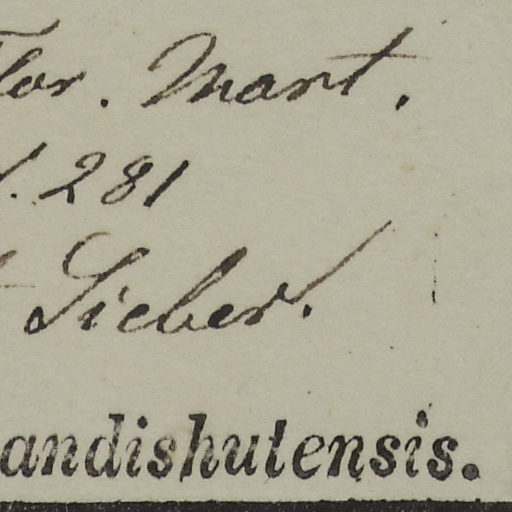 Flor. Mart.
281
Sieber.
andishutensis.